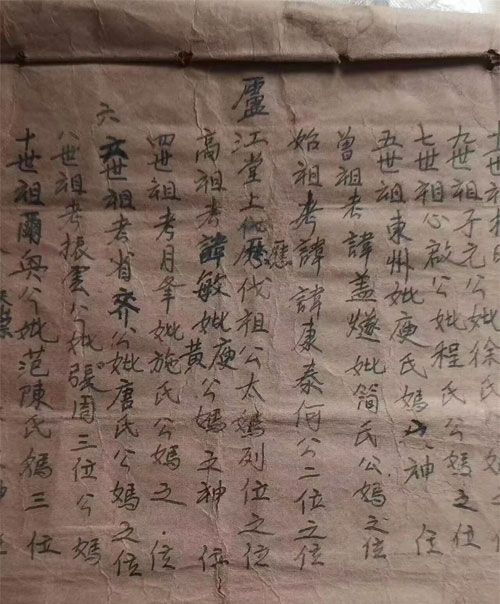 九世祖子元公妣徐氏
七世祖心啟公妣程氏公媽之位
五世祖東州妣庾氏媽神位
曾祖考諱盖燧妣簡氏公媽之位
始祖考諱應諱康泰何公二位之位
廬江堂上歷代祖公太媽列位之位
高祖考諱敏妣庾黃公媽之神位
四世祖考月峯妣施氏公媽之位
六世祖考省齐公妣唐氏公媽之位
八世祖考振雲公妣張周三位公媽
十世祖爾與公妣范陳氏媽三位